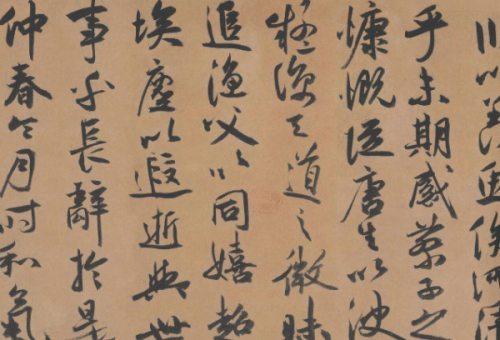 川以羡魚俟河清
乎未期感蔡子之
慷慨從唐生以決
疑諒天道之微昧
追漁父以同嬉超
埃塵以遐逝與世
事乎長辭於是
仲春令月時和氣